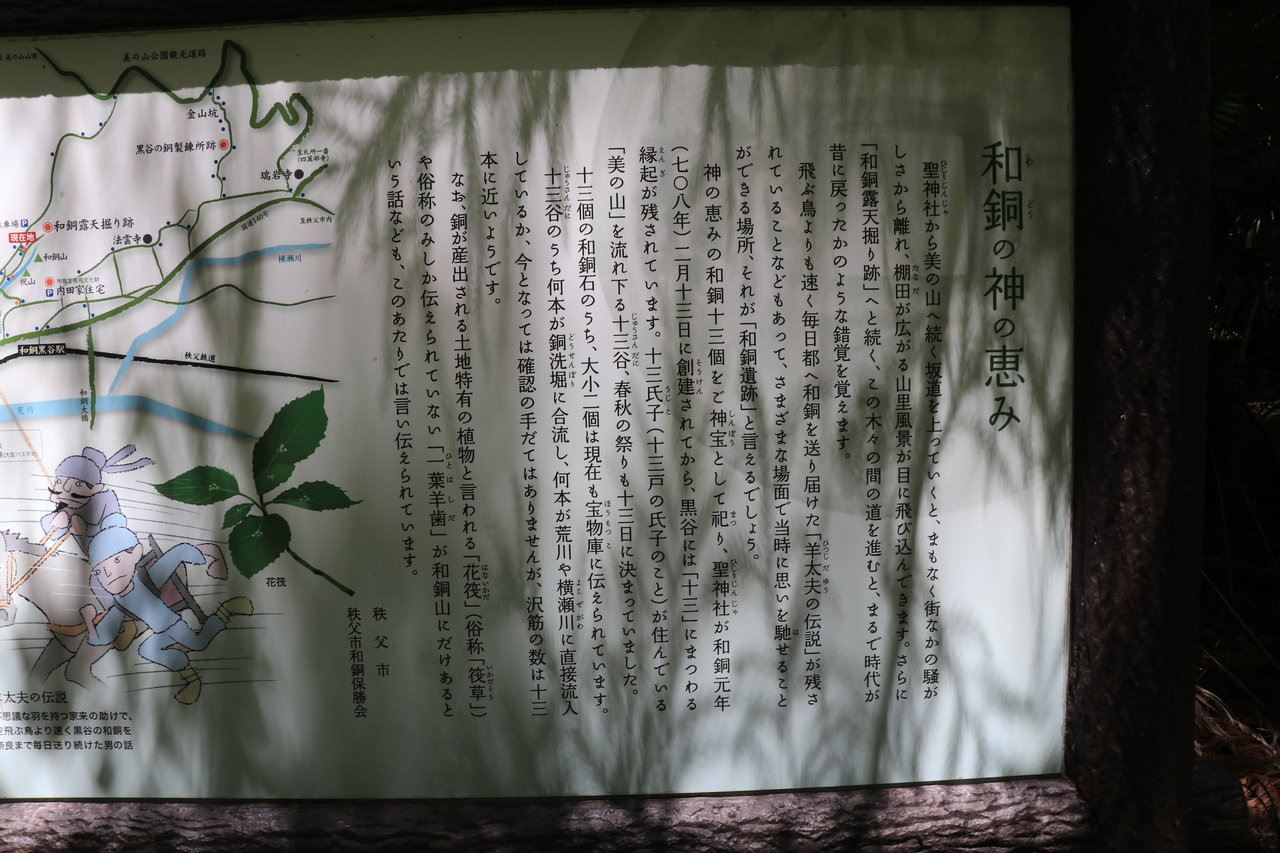 和銅の神の恵み
聖神社から美の山へ続く坂道を上っていくと、まもなく街なかの騒が
しさから離れ、棚田が広がる山里風景が目に飛び込んできます。さらに
「和銅露天掘り跡」へと続く、この木々の間の道を進むと、まるで時代が
昔に戻ったかのような錯覚を覚えます。
飛ぶ鳥よりも速く毎日都へ和銅を送り届けた「羊太夫の伝説」が残さ
れていることなどもあって、さまざまな場面で当時に思いを馳せること
ができる場所、それが「和銅遺跡」と言えるでしょう。
神の恵みの和銅十三個をご神宝として祀り、聖神社が和銅元年
(七〇八年)二月十三日に創建されてから、黒谷には「十三」にまつわる
縁起が残されています。十三氏子(十三戸の氏子のこと)が住んでいる
「美の山」を流れ下る十三谷、春秋の祭りも十三日に決まっていました。
十三個の和銅石のうち、大小二個は現在も宝物庫に伝えられています。
十三谷のうち何本が銅洗堀に合流し、何本が荒川や横瀬川に直接流入
しているか、今となっては確認の手だてはありませんが、沢筋の数は十三
本に近いようです。
なお、銅が産出される土地特有の植物と言われる「花筏」(俗称「筏草」)
や俗称のみしか伝えられていない「一葉羊歯」が和銅山にだけあると
いう話なども、このあたりでは言い伝えられています。
秩父市
秩父市和銅保勝会
美の山山頂
美の山公園観光道路
金山坑
黒谷の銅製錬所跡
至札所一番
(四萬部寺)
瑞岩寺
国道140号
至秩父市内
車場 P
和銅露天掘り跡
現在地
法雲寺
和銅山
横瀬川
祝山
市指定有形文化財
P 内田家住宅
和銅黒谷駅
秩父鉄道
和銅大橋
荒川
(大型バス不可)
花筏
羊太夫の伝説
不思議な羽を持つ家来の助けで、
空飛ぶ鳥より速く黒谷の和銅を
奈良まで毎日送り続けた男の話